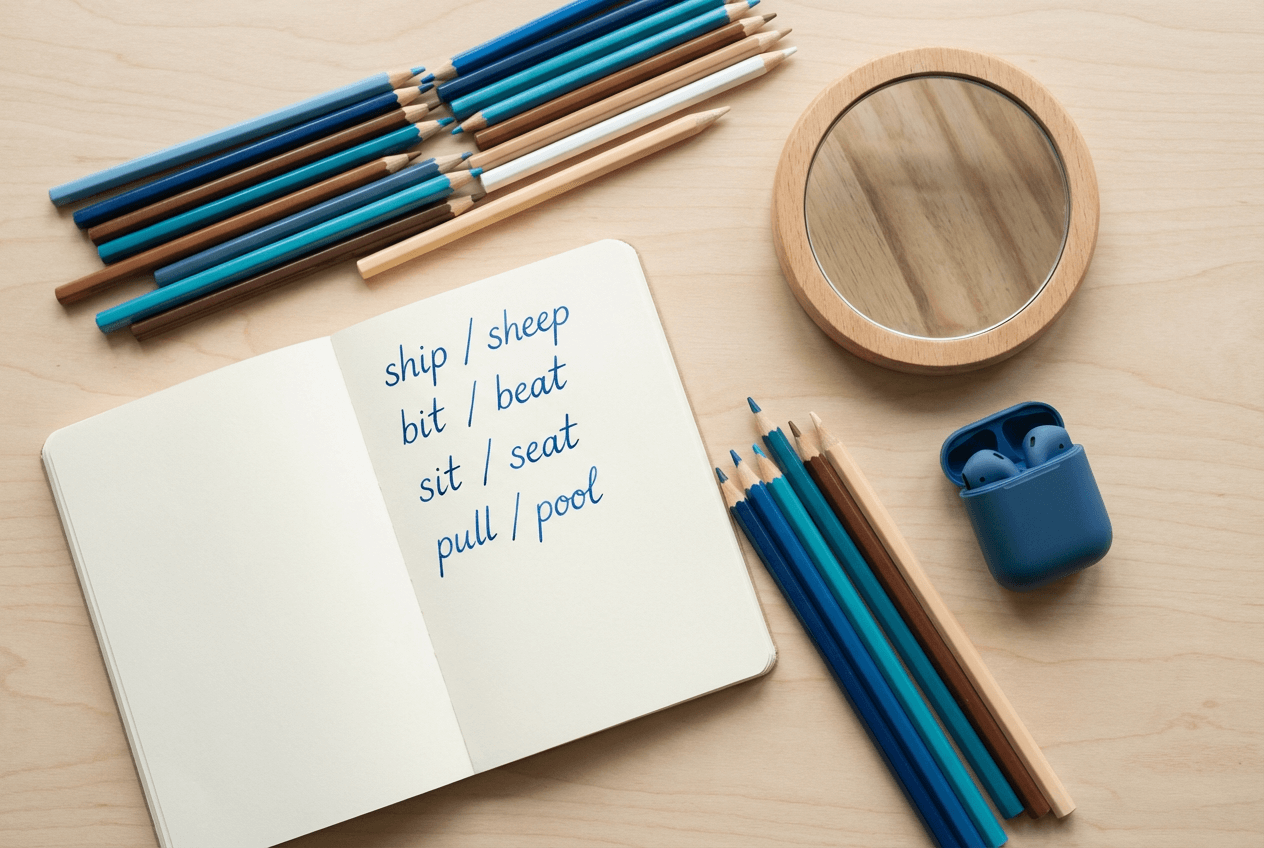 ship / sheep
bit / beat
sit / seat
pull / pool